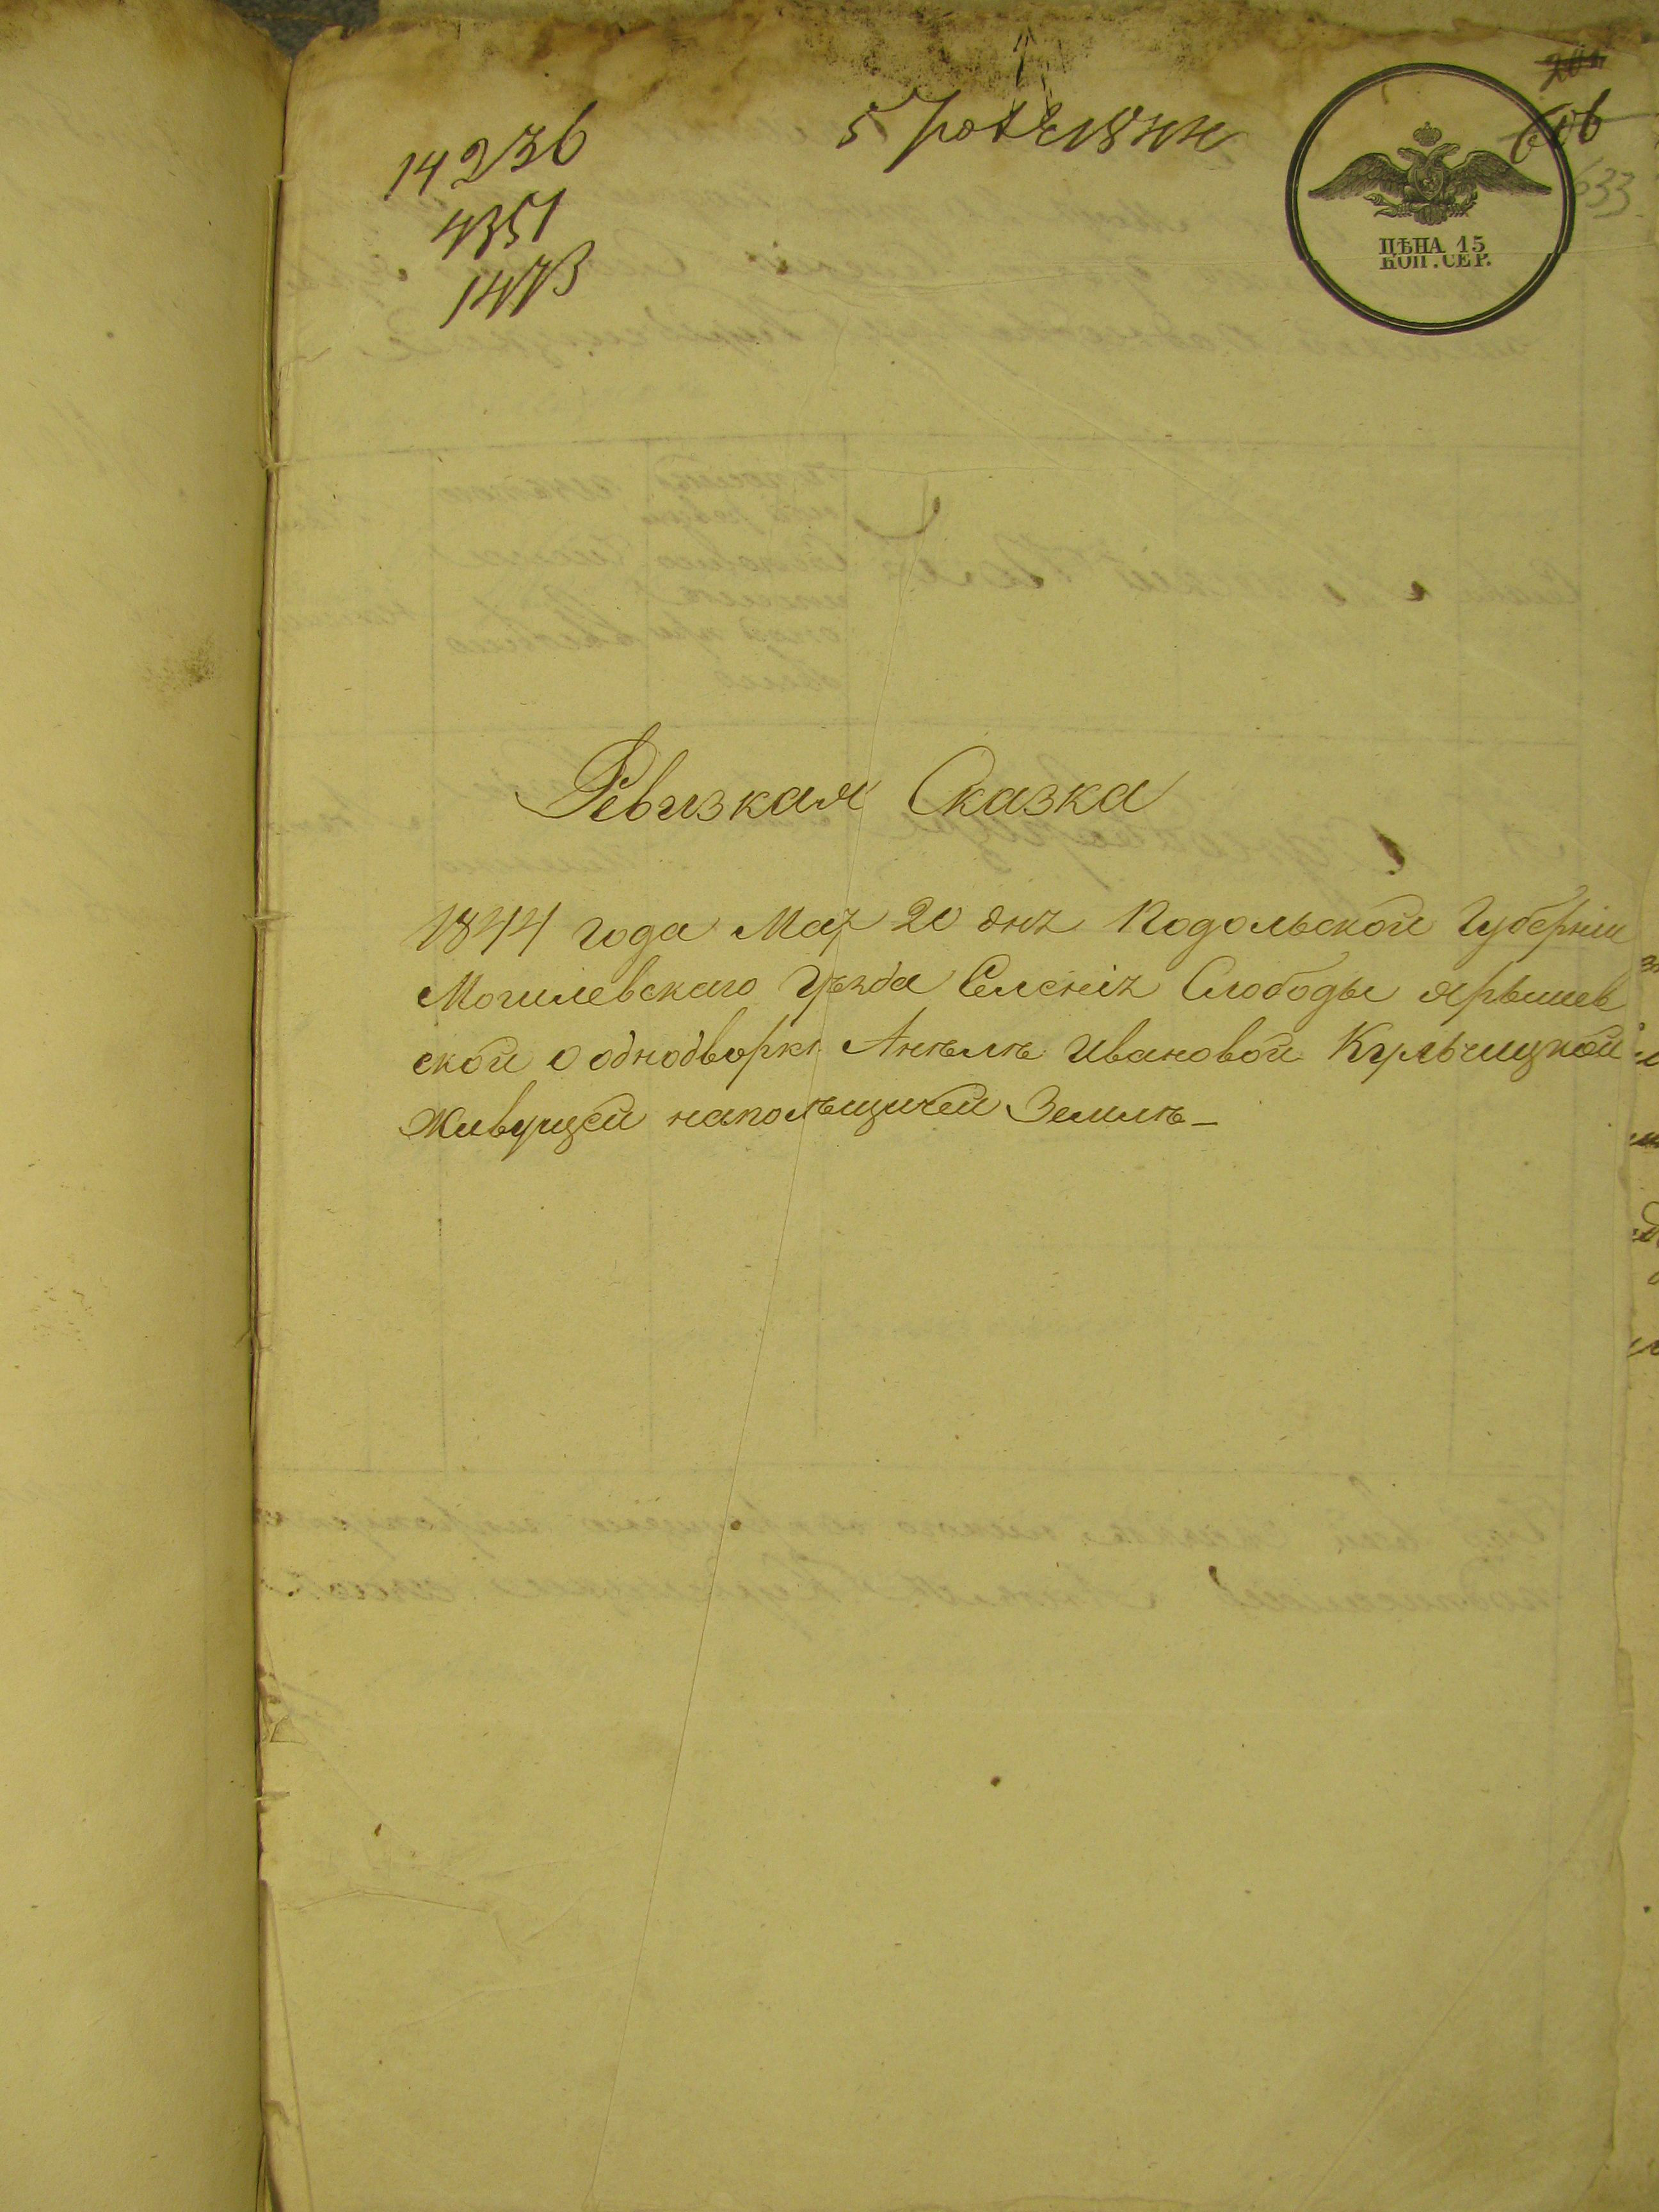 14236
4351
1473
606
633
ЦѢНА 15
КОП. СЕР.
Ревизкая Сказка
1844 года Мая 20 дня Подольской Губерніи
Могилевскаго Уѣзда Селенія Слободы Ярышев
ской о однодворкѣ Анѣлѣ Ивановой Кульчицкой
Живущей напомѣщичей Землѣ